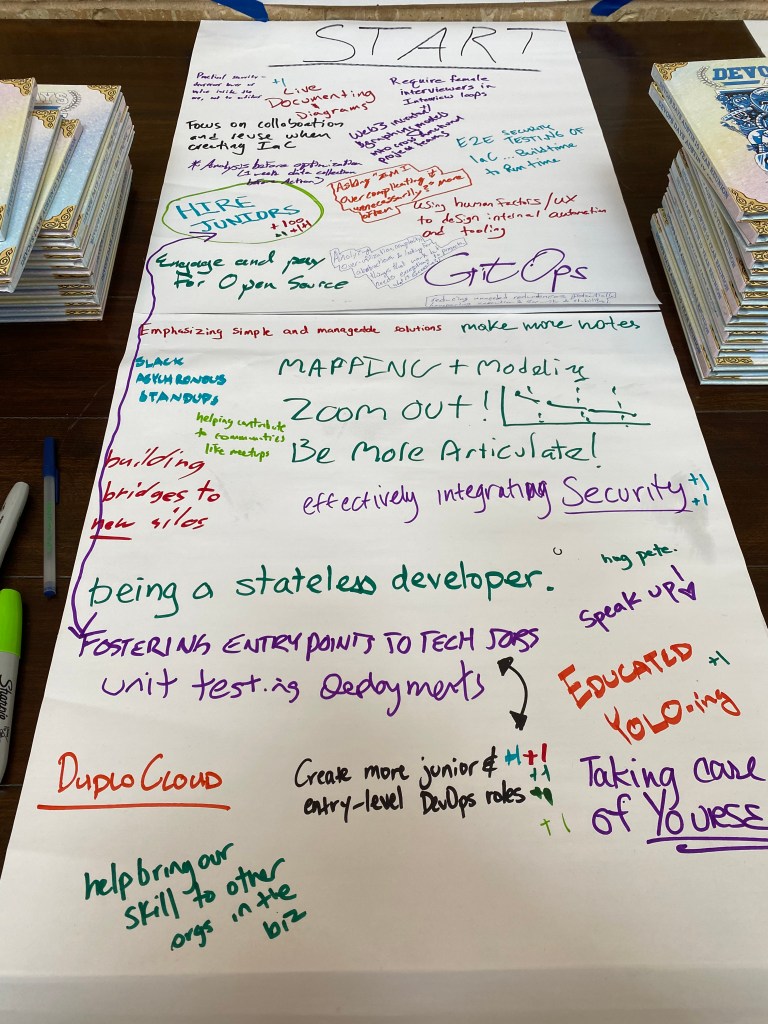 START
Practical security -
+1
Live
Documenting
Diagrams
Require female
interviewers in
Interview loops
Focus on collaboation
and reuse when
creating IaC
Web3 identity
into cross functional
project teams
E2E SECURITY
TESTING OF
IaC ... Buildtime
to Run time
* Analysis before optimization
(1 week data collection
Asking "AM I
over complicating it
unnecessarily?" more
often
HIRE
JUNIORS
+100
+1 +1
Using human factors/UX
to design internal automation
and tooling
Engage and pay
For Open Source
GitOps
Emphasizing simple and manageable solutions
make more notes
SLACK
ASYCHRONOUS
STANDUPS
MAPPING + Modeling
Zoom OUT!
helping contribute
to communities
like meetups
Be More Articulate!
building
bridges to
new silos
effectively integrating Security
+1
+1
hug pete.
being a stateless developer.
speak up!
FOSTERING ENTRYPOINTS TO TECH JOBS
unit testing Deployments
EDUCATED
YOLO-ing
+1
DuploCloud
Create more junior & +1 +1
entry-level DevOps roles
+1
+1
+1
Taking care
of YOURSE
help bring our
skill to other
orgs in the
biz
DEVO
Sharpie